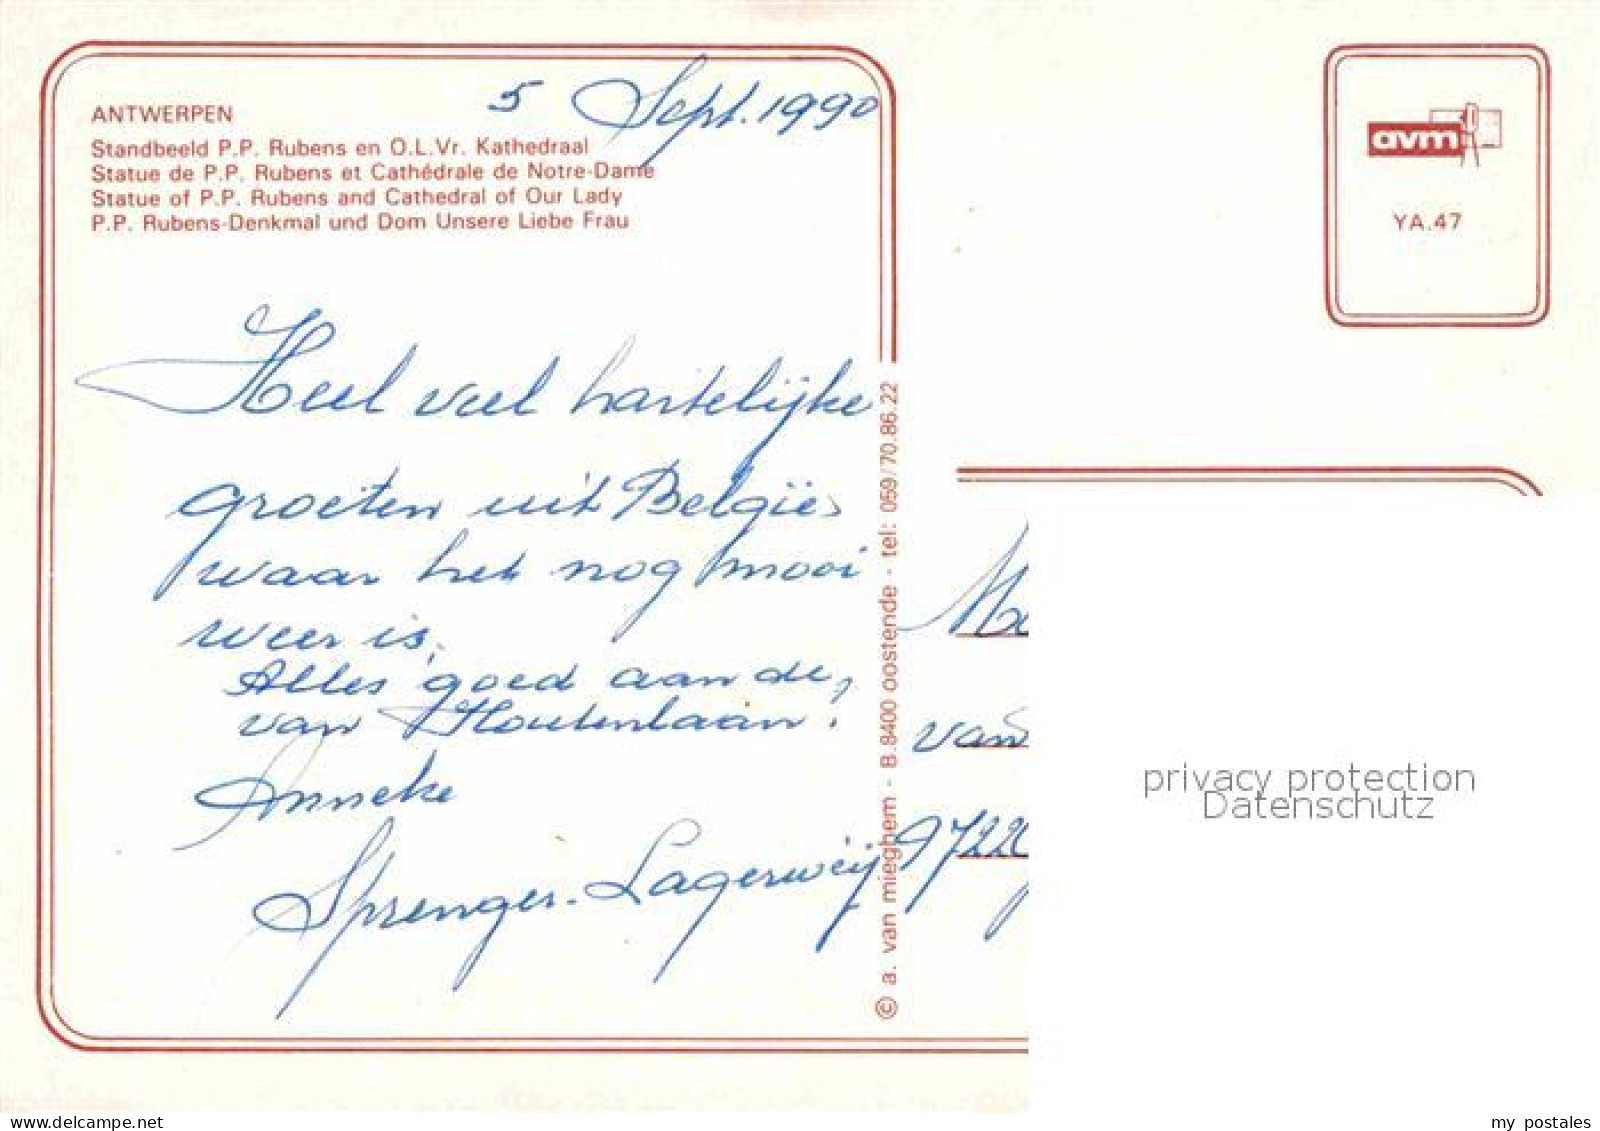 5 Sept. 1990
ANTWERPEN
Standbeeld P.P. Rubens en O.L.Vr. Kathedraal
Statue de P.P. Rubens et Cathédrale de Notre-Dame
Statue of P.P. Rubens and Cathedral of Our Lady
P.P. Rubens-Denkmal und Dom Unsere Liebe Frau
avm
YA.47
Heel veel hartelijke
groeten uit België,
waar het nog mooi
weer is.
Alles goed aan de
van Houtenlaan?
Anneke
Sprenger-Lagerweij
© a. van mieghem - B.8400 oostende - tel: 059/70.86.22
van
9722
privacy protection
Datenschutz
my postales